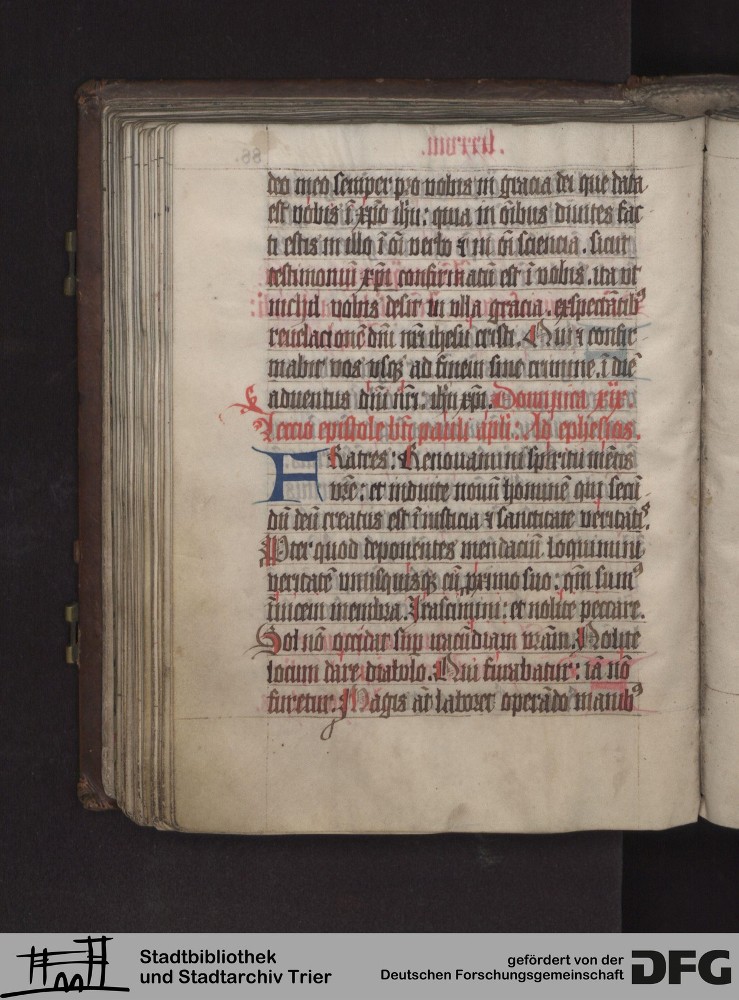 deo meo semper pro vobis in gracia dei que data
est vobis ī xp̄o ihū: quia in oībus diuites fac
ti estis in illo ī oī verbo ⁊ in oī sciencia. sicut
testimoniū xp̄i confirmatū est ī vobis. ita vt
nichil vobis desit in vlla gracia. exspectātibꝰ
reuelacionē dn̄i nr̄i ihesu cristi. Qui ⁊ confir
mabit vos vsqꝫ ad finem sine crimine. ī diē
aduentus dn̄i nr̄i. ihū xp̄i. Dominica xix.
Lectio epistole bt̄i pauli apl̄i. Ad ephesios.
FRatres: Renouamini spiritu mētis
vr̄e: et induite nouū hominē qui secū
dū deū creatus est ī iusticia ⁊ sanctitate veritatꝭ.
Ꝓter quod deponentes mendaciū loquimini
veritatē vnusquisqꝫ cū proximo suo: qm̄ sumꝰ
īuicem membra. Irascimini: et nolite peccare.
Sol nō occidat sup iracūdiam vr̄am. Nolite
locum dare diabolo. Qui furabatur: iā nō
furetur. Magis aūt laboret operādo manibꝰ
Stadtbibliothek
und Stadtarchiv Trier
gefördert von der
Deutschen Forschungsgemeinschaft
DFG